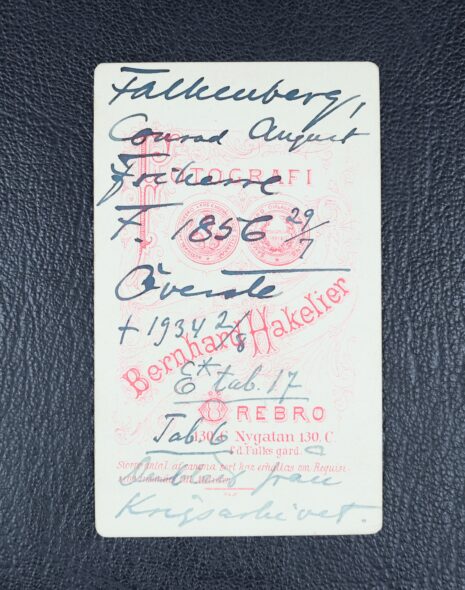 Falkenberg,
Conrad August
FOTOGRAFI
Friherre
F. 1856 29/7
Överste
+ 1934 2/8
Bernhard Hakelier
E* tab. 17
ÖREBRO
Tab 6
130.C Nygatan 130.C.
f.d. Falks gård.
Större antal af samma sort kan erhållas om
från
Krigsarkivet.